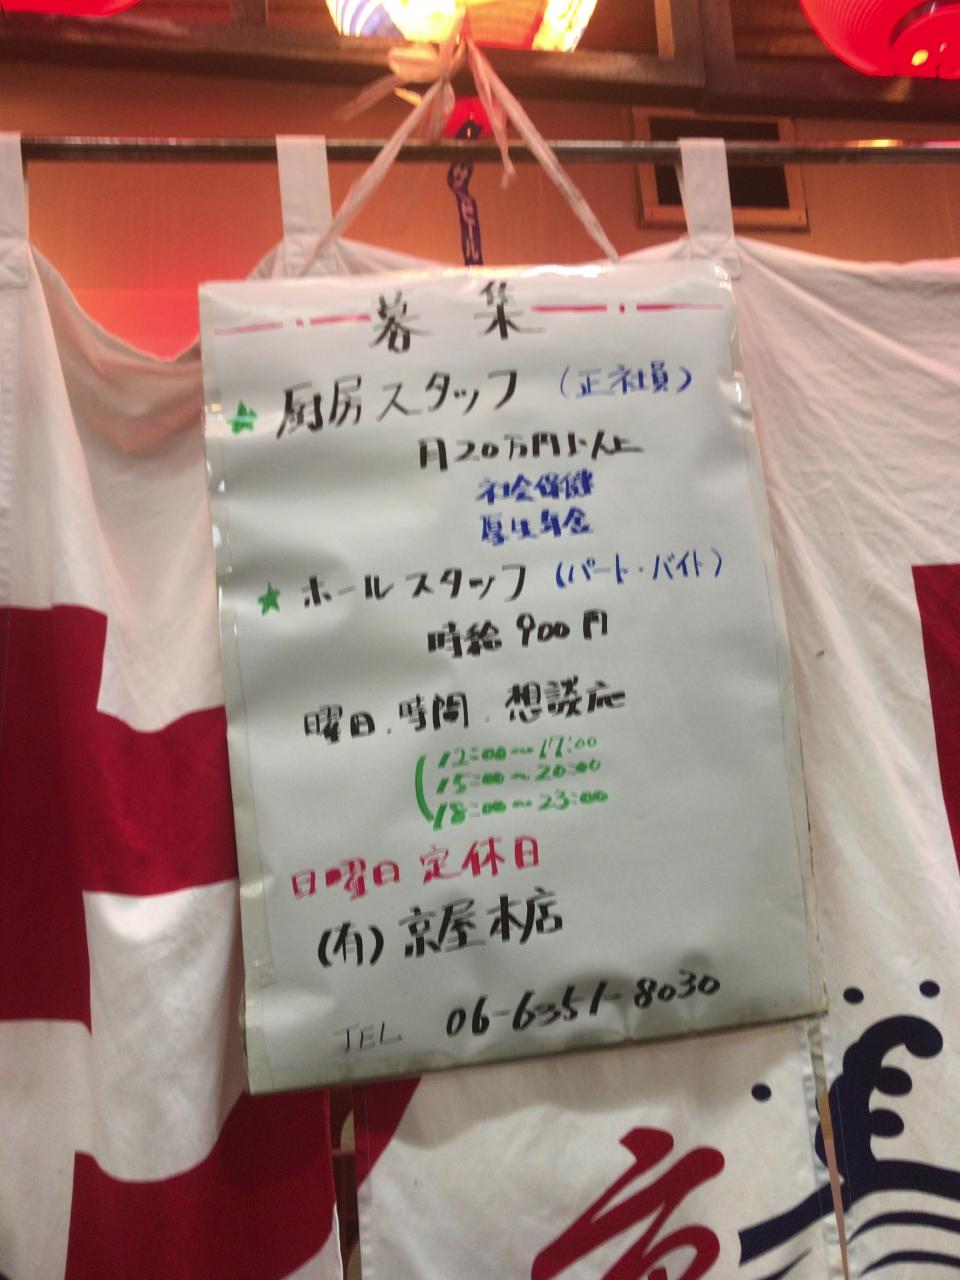 募集
★厨房スタッフ（正社員）
月20万円以上
社会保健
厚生年金
★ホールスタッフ（パート・バイト）
時給900円
曜日.時間.想談応
12:00〜17:00
15:00〜20:00
18:00〜23:00
日曜日定休日
(有)京屋本店
TEL 06-6351-8030